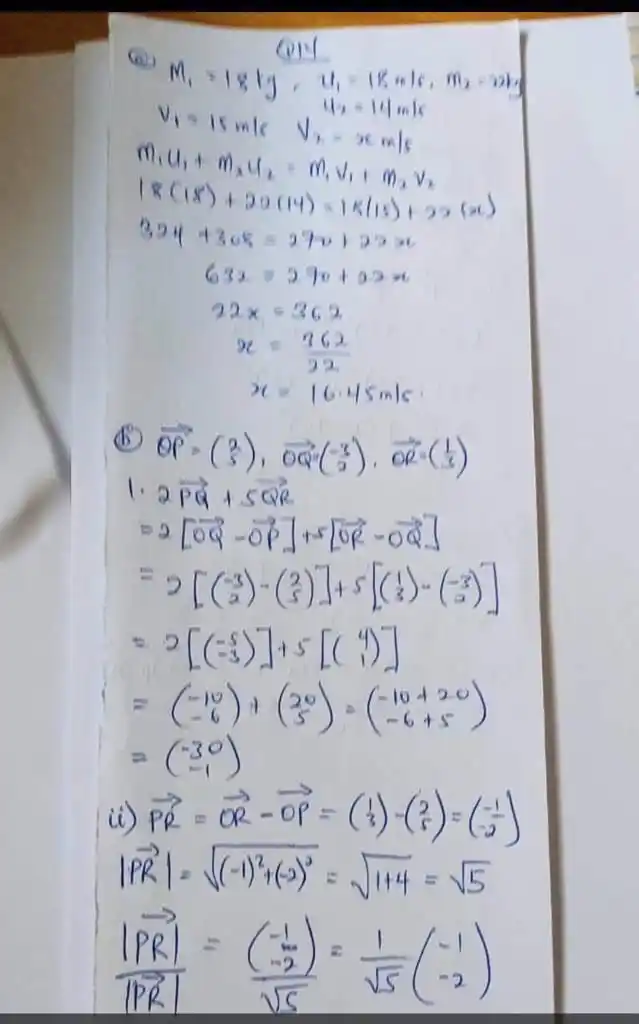 Q14
(a) M₁ = 18kg, U₁ = 18m/s, M₂ = 22kg
U₂ = 14m/s
V₁ = 15m/s V₂ = x m/s
M₁U₁ + M₂U₂ = M₁V₁ + M₂V₂
18(18) + 22(14) = 18(15) + 22(x)
324 + 308 = 270 + 22x
632 = 270 + 22x
22x = 362
x = 362/22
x = 16.45m/s.
(b) →OP = (2 5), →OQ = (-3 2), →OR = (1 3)
1. 2→PQ + 5→QR
= 2[→OQ - →OP] + 5[→OR - →OQ]
= 2[(-3 2) - (2 5)] + 5[(1 3) - (-3 2)]
= 2[(-5 -3)] + 5[(4 1)]
= (-10 -6) + (20 5) = (-10 + 20 -6 + 5)
= (-30 -1)
ii) →PR = →OR - →OP = (1 3) - (2 5) = (-1 -2)
|→PR| = √(-1)²+(-2)² = √1+4 = √5
|→PR|/|→PR| = (-1 -2)/√5 = 1/√5 (-1 -2)